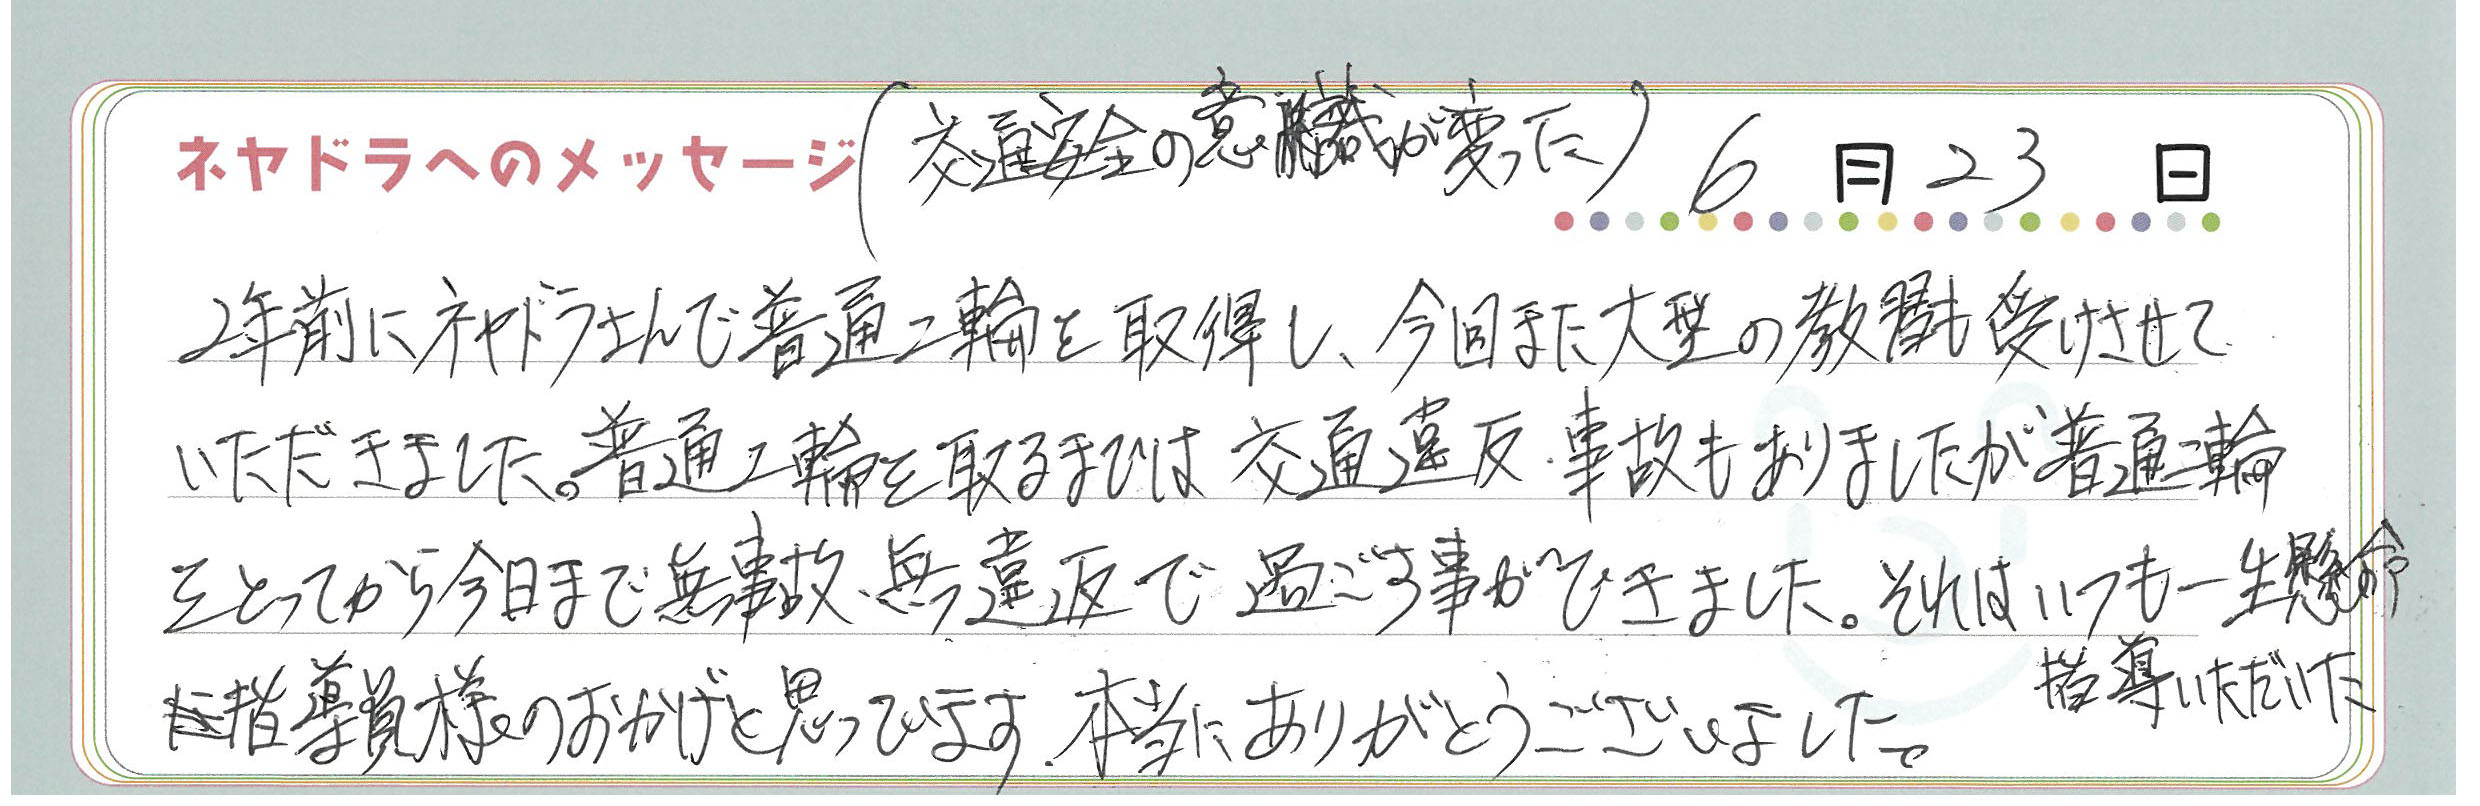 ネヤドラへのメッセージ(交通安全の意識が変った) 6月23日
2年前にネヤドラさんで普通二輪を取得し、今回また大型の教習も受けさせて
いただきました。普通二輪を取るまでは交通違反・事故もありましたが普通二輪
をとってから今日まで無事故、無違反で過ごす事ができました。それはいつも一生懸命
指導いただいた
指導員様のおかげと思っています。本当にありがとうございました。